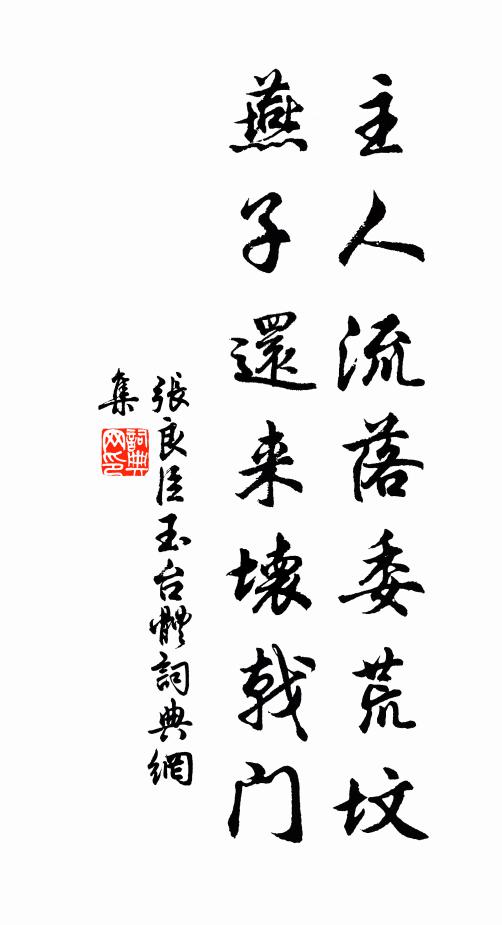 主人流落委荒坟
燕子還来壊戟门
張良臣玉台體詞典網
集
詞典
网印